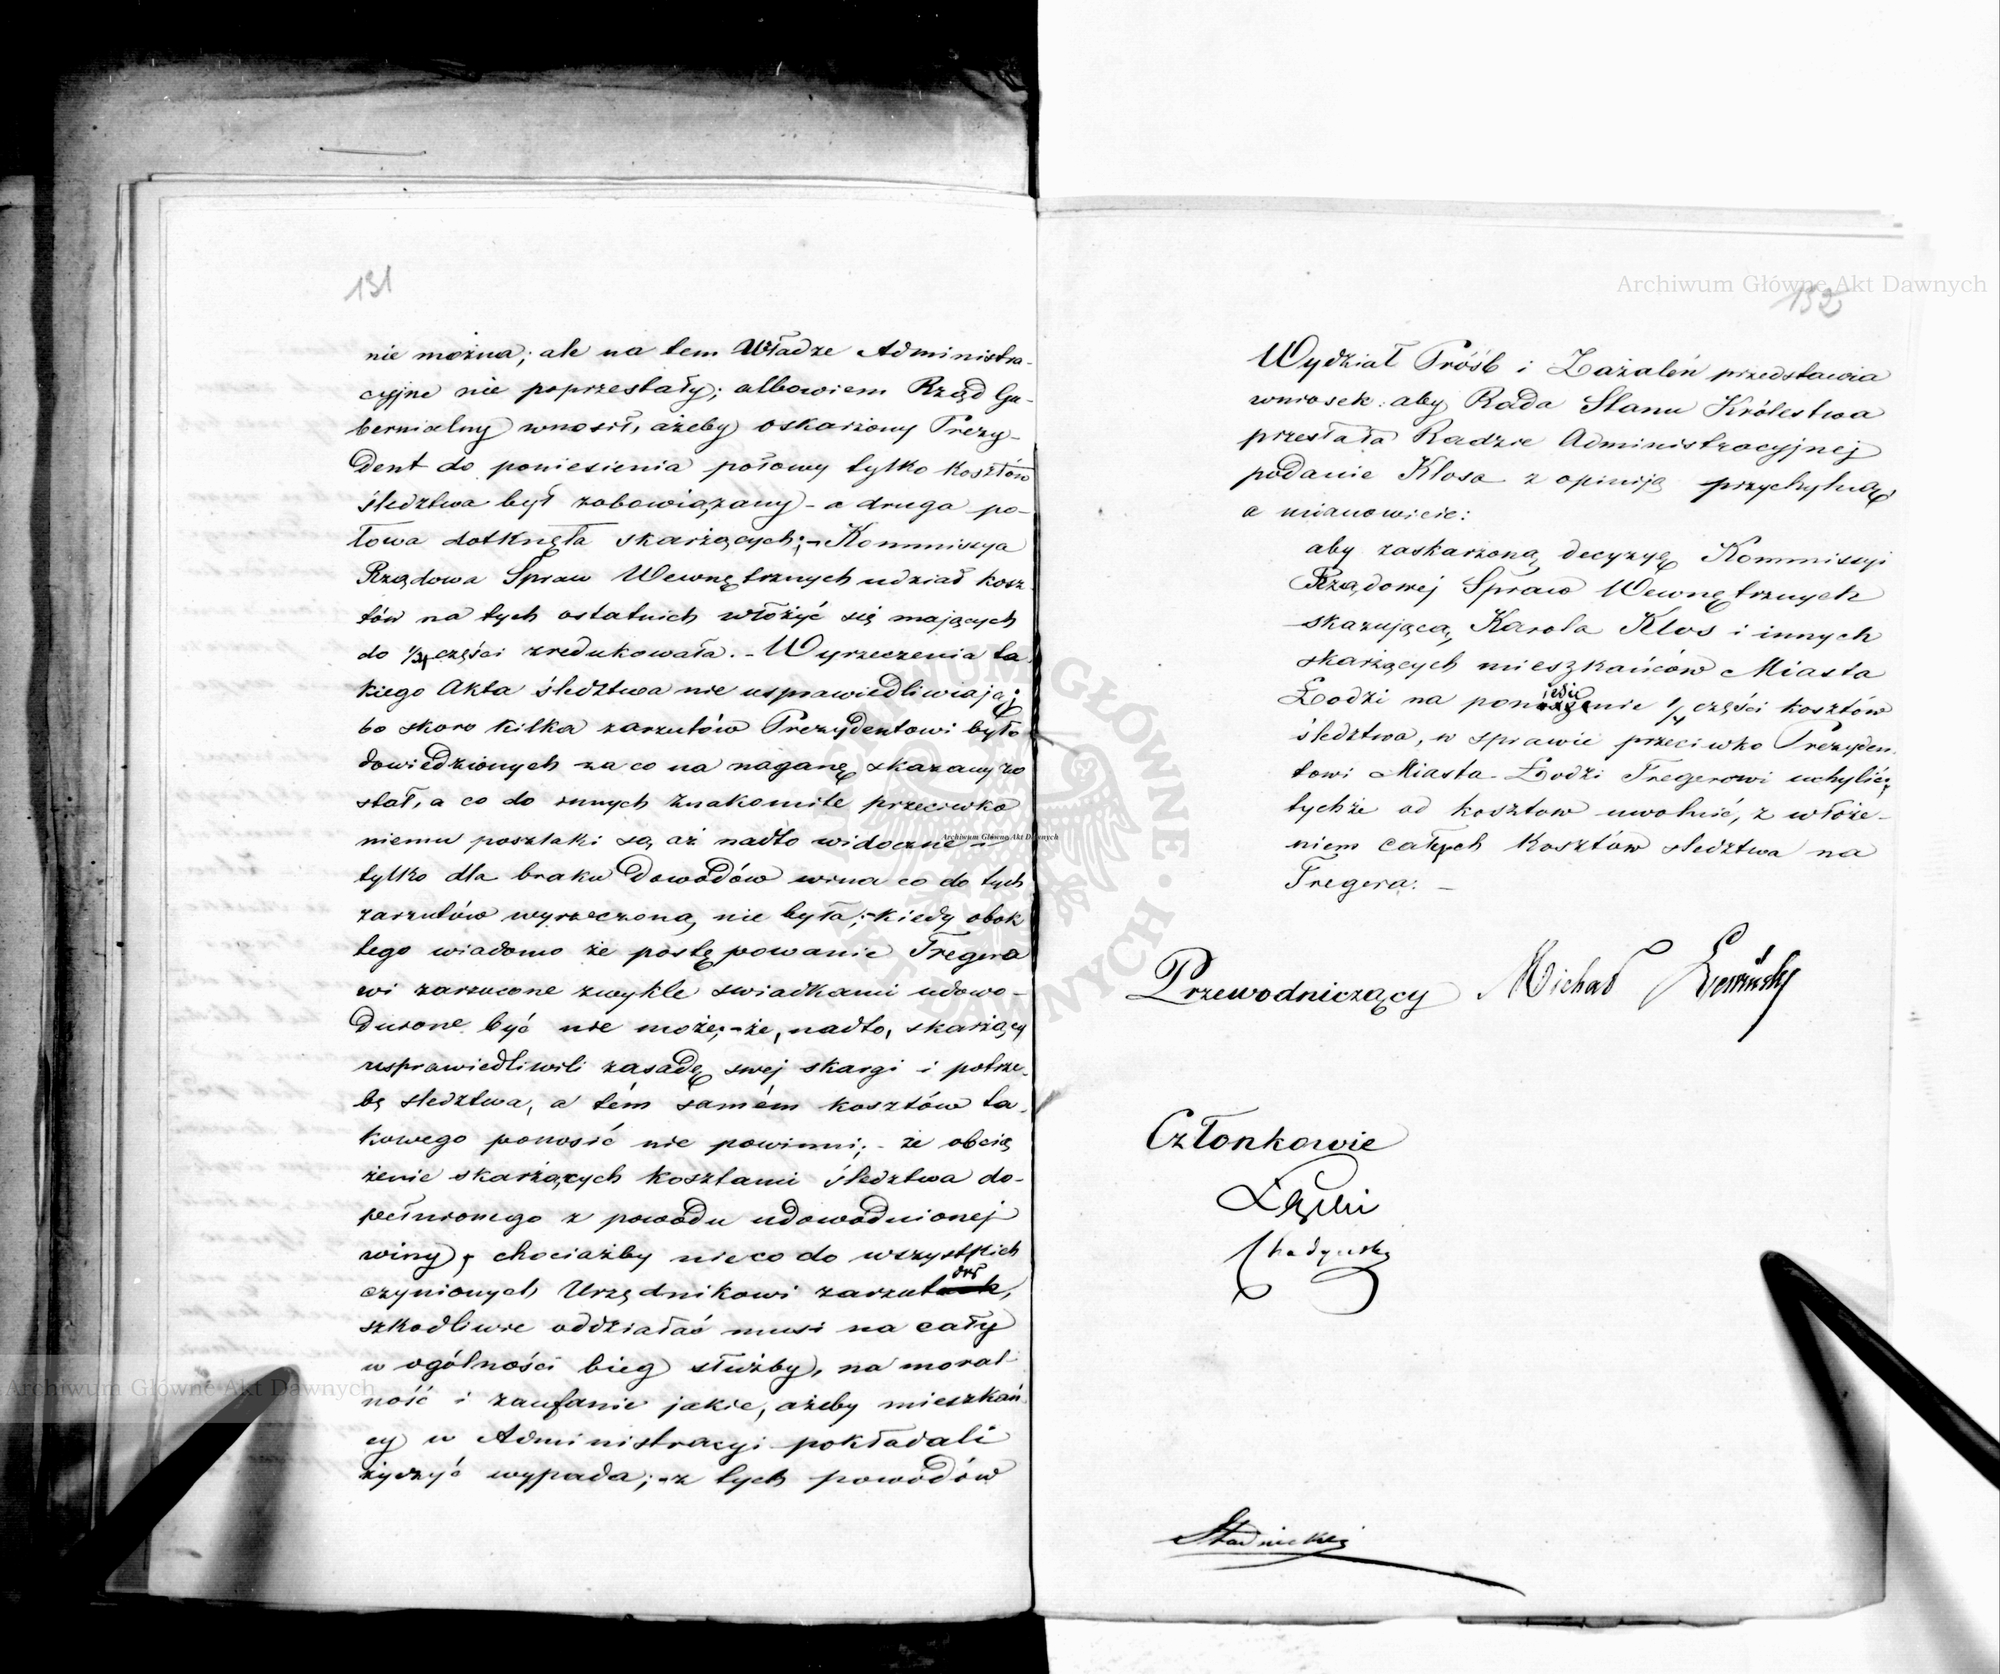 131
nie można; ale na tem Władze Administra-
cyjne nie poprzestały; albowiem Rząd Gu-
bernialny wnosił, ażeby oskarżony Prezy-
dent do poniesienia połowy tylko kosztów
śledztwa był zobowiązany - a druga po-
łowa dotknęła skarżących; - Kommissya
Rządowa Spraw Wewnętrznych udział kosz-
tów na tych ostatnich włożyć się mających
do 1/4 części zredukowała. - Wyrzeczenia ta-
kiego Akta śledztwa nie usprawiedliwiają;
bo skoro kilka zarzutów Prezydentowi było
dowiedzionych za co na naganę skazany zo
stał, a co do innych znakomite przeciwko
niemu poszlaki są, aż nadto widoczne i
tylko dla braku dowodów wina co do tych
zarzutów wyrzeczoną nie była; - kiedy obok
tego wiadomo że postępowanie Tregera
wi zarzucone zwykle swiadkami udowo-
dnione być nie może; - że, nadto, skarżący
usprawiedliwili zasadę swej skargi i potrze-
bę sledztwa, a tém samém kosztów ta-
kowego ponosić nie powinni; - że obcią
żenie skarżących kosztami śledztwa do-
pełnionego z powodu udowodnionej
winy, chociażby nie co do wszystkich
czynionych Urzędnikowi zarzut
szkodliwie oddziałać musi na cały
w ogólności bieg służby, na moral-
ność i zaufanie jakie, ażeby mieszkań-
cy w Administracyi pokładali
życzyć wypada; - z tych powodów
Archiwum Główne Akt Dawnych
Archiwum Główne Akt Dawnych
Archiwum Główne Akt Dawnych
132
Wydział Próśb i Zażaleń przedstawia
wniosek: aby Rada Stanu Królestwa
przesłała Radzie Administracyjnej
podanie Klosa z opiniją przychylną,
a mianowicie:
aby zaskarżoną decyzyę Kommissyi
Rządowej Spraw Wewnętrznych
skazującą Karola Klos i innych
skarżących mieszkańców Miasta
Łodzi na poniesienie 1/4 części kosztów
śledztwa, w sprawie przeciwko Prezyden-
towi Miasta Łodzi Tregerowi uchylić,
tychże od kosztow uwolnić, z włoże-
niem całych kosztów sledztwa na
Tregera: -
Przewodniczący Michał
Członkowie
Stadnicki